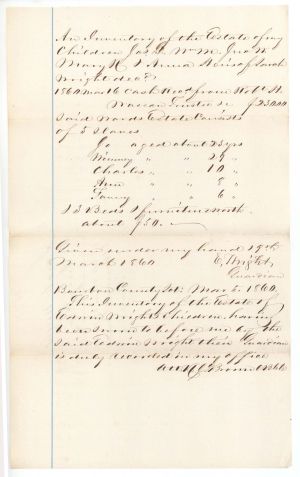 An Inventory of the Estate of my
Children Jas L. Wm M. Jno W.
Mary & Anna Heirs of Sarah
Wright decd
1860 Mar 16 Cash Recd from Robt H.
Trustee
Said Wards Estate Consists
of 5 slaves
aged about 25 yrs
Winney " " 29 "
Charles " " 10 "
Ann " " 8 "
Fanny " " 6 "
& 3 Beds & furniture worth
about $50.—
Given under my hand 19th
March 1860
E. Wright,
Guardian
County Sct. Mar 1860
This Inventory of the Estate of
Edwin Wrights Children having
been sworn to before me by the
said Edwin Wright their Guardian
is duly recorded in my office